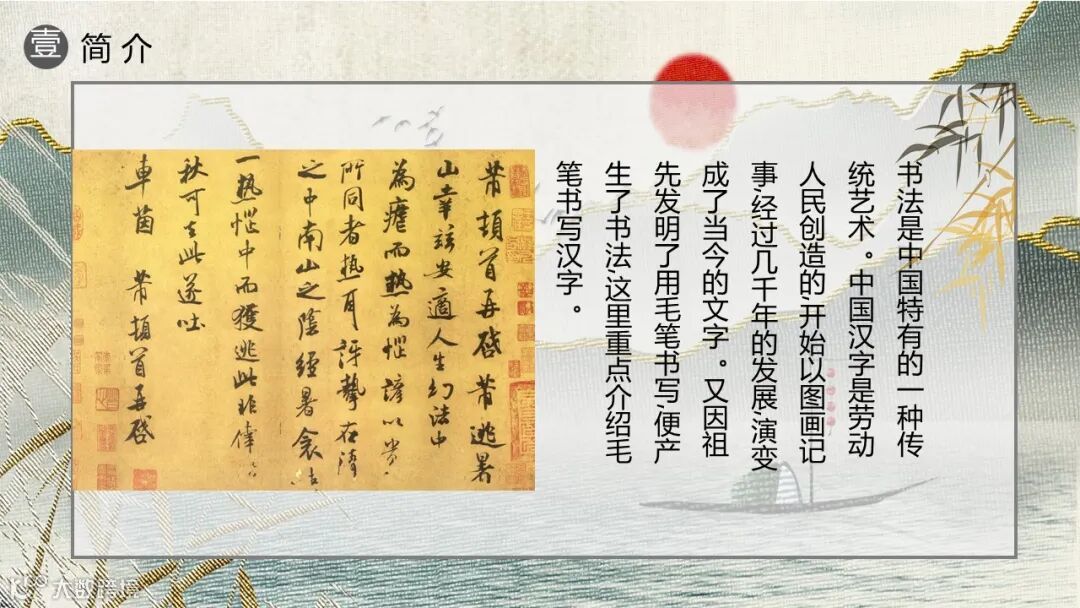 壹
简介
书法是中国特有的一种传
统艺术。中国汉字是劳动
人民创造的,开始以图画记
事,经过几千年的发展,演变
成了当今的文字。又因祖
先发明了用毛笔书写,便产
生了书法,这里重点介绍毛
笔书写汉字。
芾頓首再啓芾逃暑
山幸兹安適人生幻法中
為虐而热為惱諺以貴
所同者热耳訝挈在清
之中南山之陰經暑衾
一热惱中而獲逃此非偉
秋可去此遂吐
車茵 芾頓首再啓
大数跨境